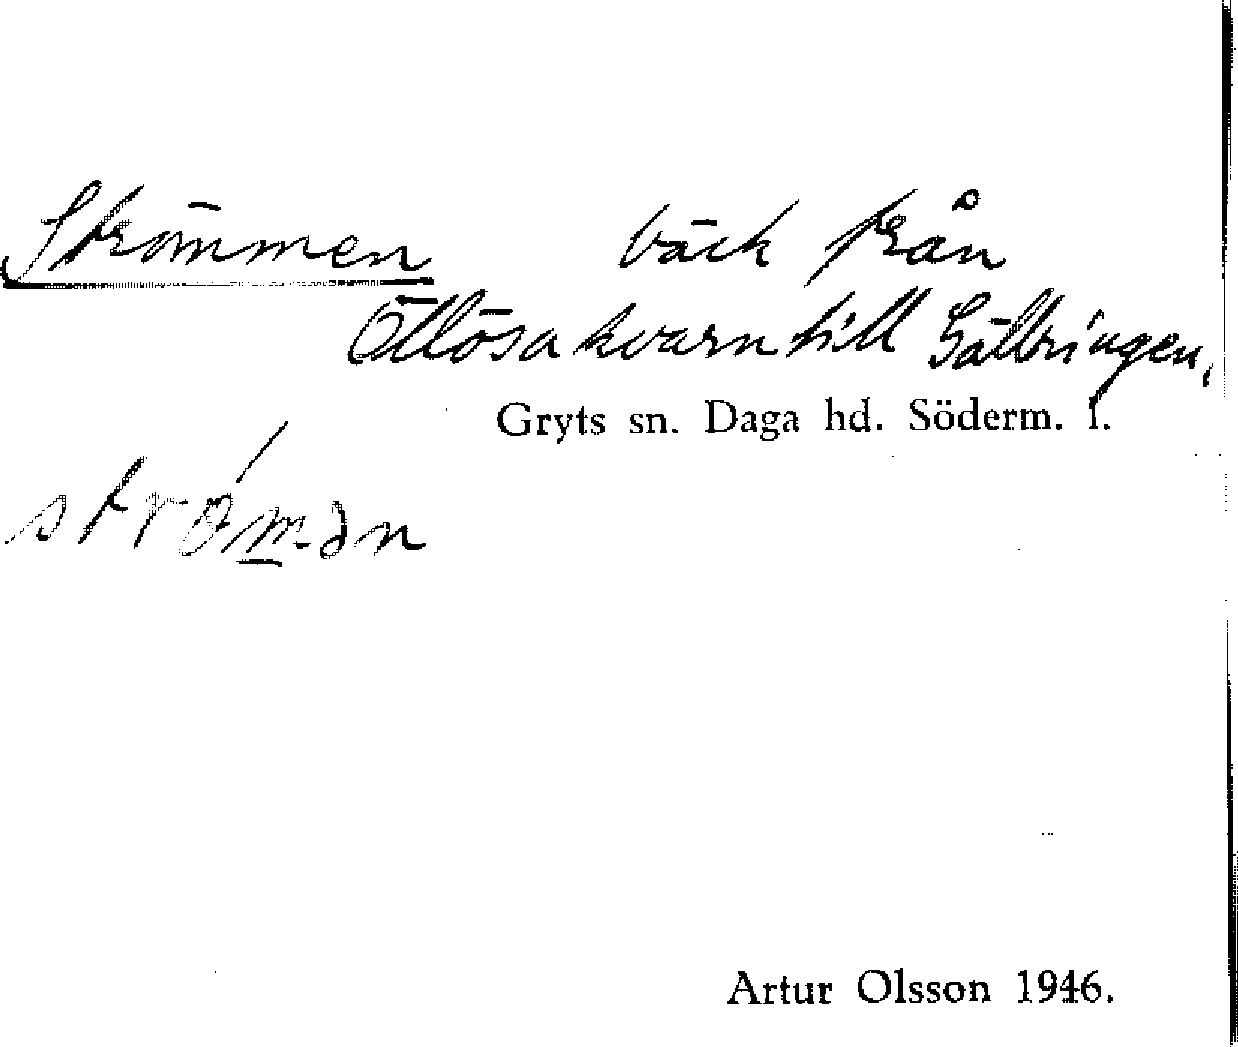 Strömmen bäck från
Ötlösa kvarn till Gälbringen,
Gryts sn. Daga hd. Söderm. l.
Artur Olsson 1946.